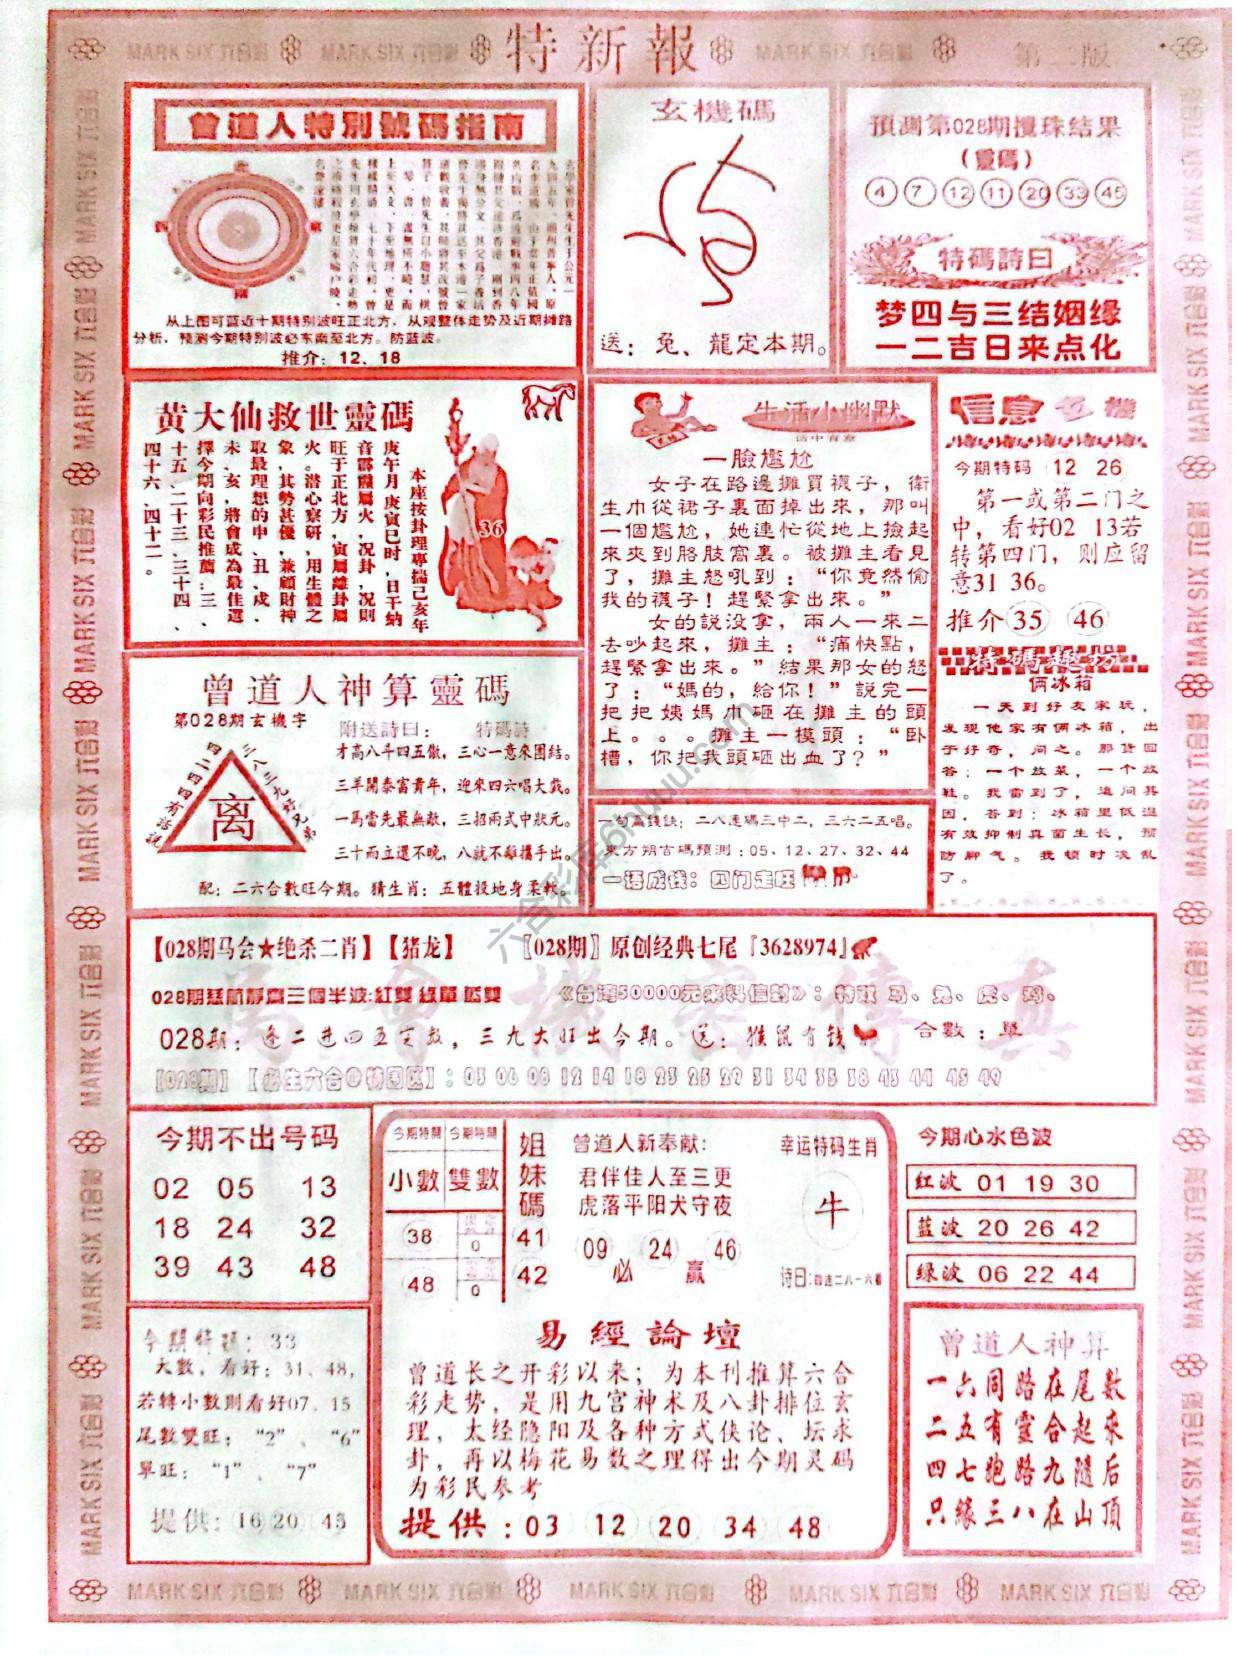 MARK SIX 六合彩 MARK SIX 六合彩 特新報 MARK SIX 六合彩 第二版
曾道人特別號碼指南
从上图可蓝近十期特别波旺正北方，从观整体走势及近期摊路
分析，预测今期特别波必东南至北方。防蓝波。
推介：12、18
玄機碼
送：兔、龍定本期。
預測第028期攪珠結果
（靈碼）
4 7 12 11 20 33 45
特碼詩曰
梦四与三结姻缘
一二吉日来点化
黄大仙救世靈碼
本座按卦理專揣己亥年
庚午月庚寅巳时，日干納
音霹靂屬火，况卦，况则
旺于正北方，寅屬離卦屬
火。潜心察研，用生體之
象，其勢甚優，兼顧財神
取最理想的申、丑、戌、
未、亥，將會成為最佳選
擇今期向彩民推薦：三、
十五、二十三、三十四、
四十六、四十二。
36
生活小幽默
一臉尷尬
女子在路邊攤買襪子，衛
生巾從裙子裏面掉出來，那叫
一個尷尬，她連忙從地上撿起
來夾到胳肢窩裏。被攤主看見
了，攤主怒吼到：“你竟然偷
我的襪子！趕緊拿出來。”
女的説没拿，兩人一來二
去吵起來，攤主：“痛快點，
趕緊拿出來。”結果那女的怒
了：“媽的，給你！”説完一
把把姨媽巾砸在攤主的頭
上。。。攤主一模頭：“卧
槽，你把我頭砸出血了？”
信息玄機
今期特码 12 26
第一或第二门之
中，看好02 13若
转第四门，则应留
意31 36。
推介 35 46
特碼趣坊
俩冰箱
一天到好友家玩，
发现他家有俩冰箱，出
于好奇，问之。那货回
答：一个放菜，一个放
鞋。我雷到了，追问其
因，答到：冰箱里低温
有效抑制真菌生长，预
防脚气。我顿时凌乱
了。
曾道人神算靈碼
第028期玄機字
附送詩曰： 特碼詩
离
才高八斗四五傲，三心一意來團結。
三羊開泰富貴年，迎來四六唱大戲。
一馬當先最無敵，三招兩式中狀元。
三十而立還不晚，八就不離攜手出。
配：二六合數旺今期。猜生肖：五體投地身柔軟。
一句贏錢訣：二八連碼三中二，三六二五唱。
東方朔吉碼預測：05、12、27、32、44
一语成钱：四门走旺
【028期马会★绝杀二肖】【猪龙】
〖028期〗原创经典七尾『3628974』
028期慈航靜齋三個半波:紅雙 綠單 藍雙
《台湾50000元来料信封》：特双 马、兔、虎、鸡、
028期：逢二进四五定数，三九大旺出今期。送：猴鼠有钱 合數：單
馬會機密傳真
【028期】【必生六合◎特围区】：03 06 08 12 14 18 23 25 29 31 34 35 38 43 44 45 49
今期不出号码
02 05 13
18 24 32
39 43 48
今期特開 今期特開
小數 雙數
38 0
48 0
姐妹碼
41
42
曾道人新奉献:
君伴佳人至三更
虎落平阳犬守夜
09 24 46
必 赢
幸运特码生肖
牛
诗曰:四连二八一六看
今期心水色波
红波 01 19 30
蓝波 20 26 42
绿波 06 22 44
今期特碼：33
大數，看好：31、48，
若转小數則看好07、15
尾數雙旺：“2”、“6”
單旺：“1”、“7”
提供：16 20 45
易經論壇
曾道长之开彩以来；为本刊推算六合
彩走势，是用九宫神术及八卦排位玄
理，太经隐阳及各种方式侠论、坛求
卦，再以梅花易数之理得出今期灵码
为彩民参考
提供：03 12 20 34 48
曾道人神算
一六同路在尾數
二五有靈合起來
四七跑路九隨后
只緣三八在山頂
MARK SIX 六合彩 MARK SIX 六合彩 MARK SIX 六合彩 MARK SIX 六合彩 MARK SIX 六合彩